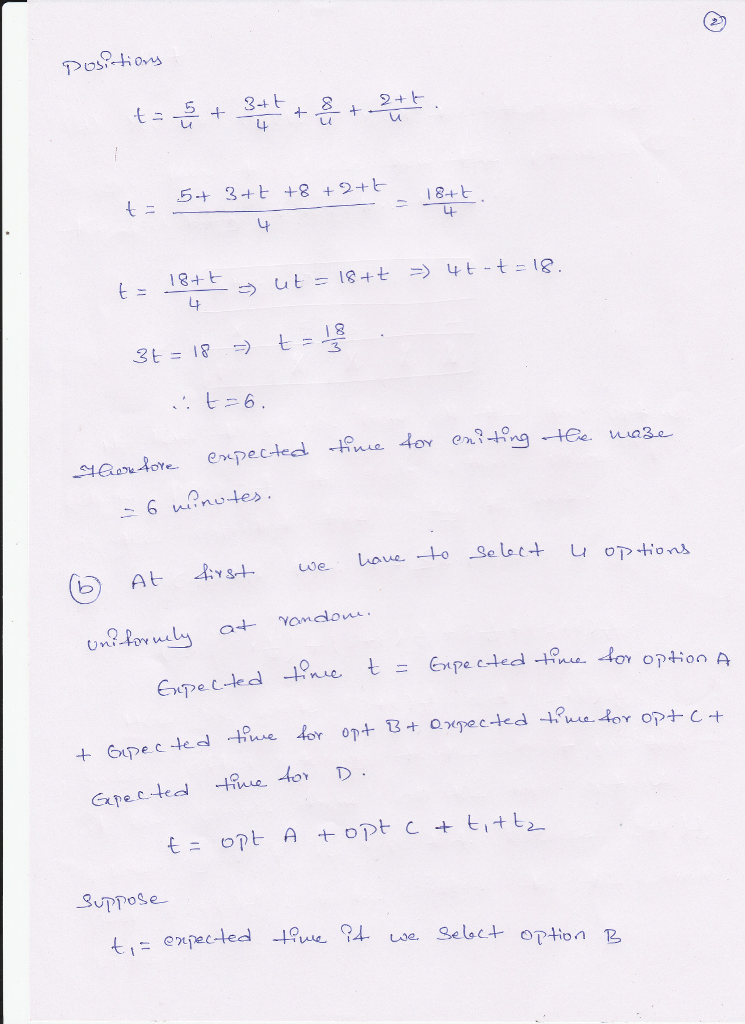 2
Positions
t = 5/4 + 3+t/4 + 8/4 + 2+t/4 .
t = 5+ 3+t +8 +2+t / 4 = 18+t/4 .
t = 18+t/4 ⇒ 4t = 18+t ⇒ 4t-t = 18.
3t = 18 ⇒ t = 18/3 .
∴ t = 6.
Therefore expected time for exiting the maze
= 6 minutes.
(b) At first we have to select 4 options
uniformly at random.
Expected time t = Expected time for option A
+ Expected time for opt B + expected time for opt C +
Expected time for D.
t = opt A + opt C + t₁ + t₂
Suppose
t₁ = expected time if we select option B